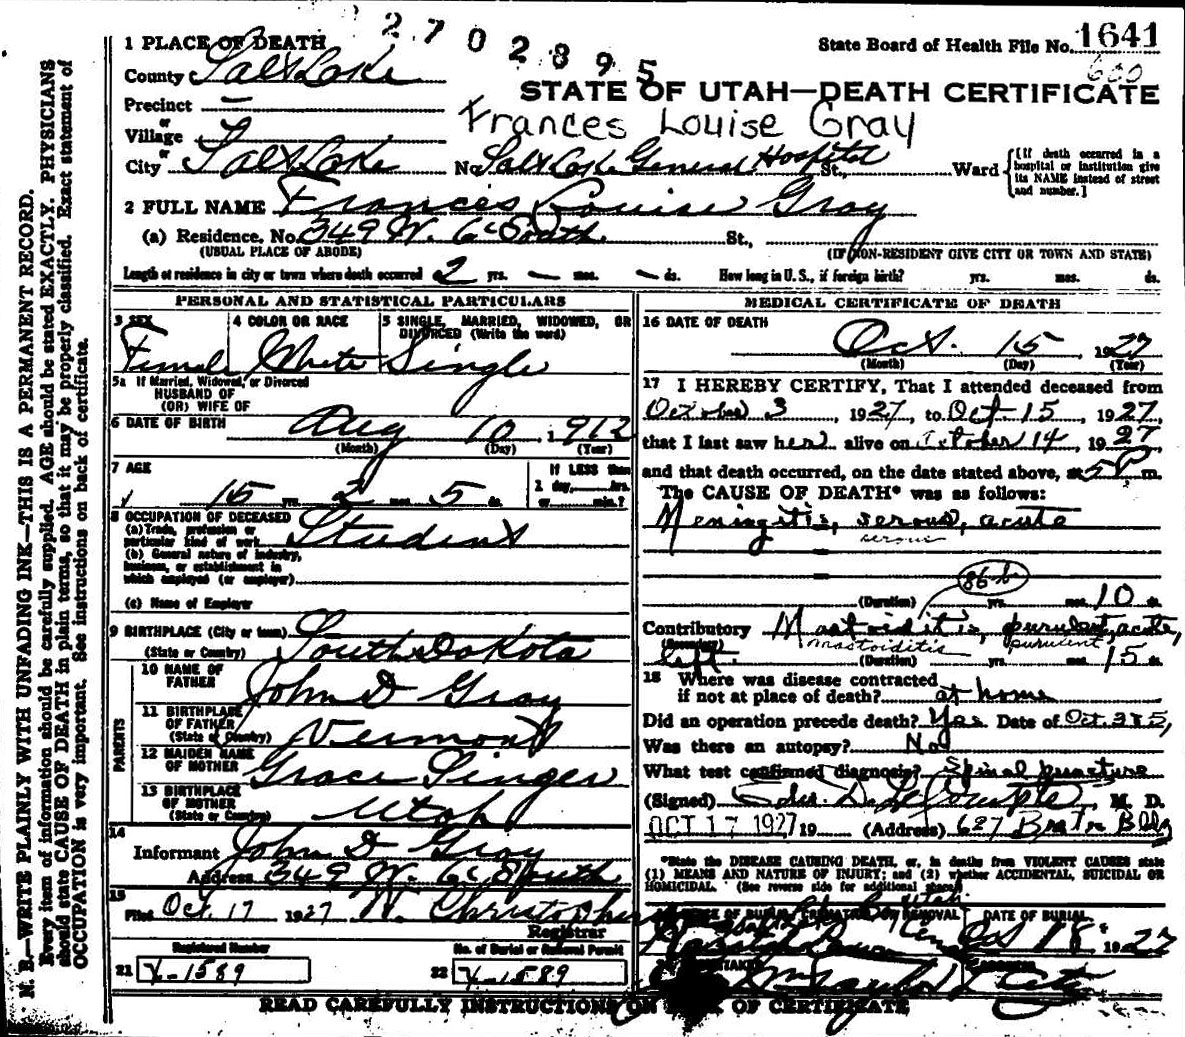 270295
State Board of Health File No. 1641
600
1 PLACE OF DEATH
County Salt Lake
STATE OF UTAH—DEATH CERTIFICATE
Precinct —
or
Village —
Frances Louise Gray
or
City Salt Lake No. Salt Lake General Hospital St., Ward
{[If death occurred in a hospital or institution give its NAME instead of street and number.]
2 FULL NAME Frances Louise Gray
(a) Residence. No. 349 W. 6th South St.,
(USUAL PLACE OF ABODE) (IF NON-RESIDENT GIVE CITY OR TOWN AND STATE)
Length of residence in city or town where death occurred 2 yrs. — mos. — ds. How long in U. S., if foreign birth? yrs. mos. ds.
PERSONAL AND STATISTICAL PARTICULARS
3 SEX 4 COLOR OR RACE 5 SINGLE, MARRIED, WIDOWED, OR
DIVORCED (Write the word)
Female White Single
5a If Married, Widowed, or Divorced
HUSBAND OF
(OR) WIFE OF
6 DATE OF BIRTH Aug 10, 1912
(Month) (Day) (Year)
7 AGE If LESS than
15 yrs. 2 mos. 5 ds. 1 day, hrs.
or min.?
8 OCCUPATION OF DECEASED
(a) Trade, profession or
particular kind of work Student
(b) General nature of industry,
business, or establishment in
which employed (or employer)
(c) Name of Employer
9 BIRTHPLACE (City or town)
(State or Country) South Dakota
PARENTS
10 NAME OF
FATHER John D Gray
11 BIRTHPLACE
OF FATHER
(State or Country) Vermont
12 MAIDEN NAME
OF MOTHER Grace Singer
13 BIRTHPLACE
OF MOTHER
(State or Country) Utah
14
Informant John D Gray
Address 349 W. 6th South
15
Filed Oct 17 1927 W. Christopherson
Registrar
Registered Number No. of Burial or Removal Permit
21 X-1589 22 X-1589
MEDICAL CERTIFICATE OF DEATH
16 DATE OF DEATH
Oct. 15, 1927
(Month) (Day) (Year)
17 I HEREBY CERTIFY, That I attended deceased from
October 3, 1927, to Oct-15, 1927,
that I last saw her alive on October 14, 1927
and that death occurred, on the date stated above, at 5 P. m.
The CAUSE OF DEATH* was as follows:
Meningitis, serous, acute
serous
86-b
(Duration) yrs. mos. 10 ds.
Contributory Mastoiditis, purulent, acute,
(Secondary) mastoiditis purulent
left. (Duration) yrs. mos. 15 ds.
18 Where was disease contracted
if not at place of death? at home
Did an operation precede death? Yes Date of Oct. 3 & 5,
Was there an autopsy? No
What test confirmed diagnosis? Spinal puncture
(Signed) Edw. D. LeCompte, M. D.
OCT 17 1927 19 (Address) 627 Bldg
*State the DISEASE CAUSING DEATH, or, in deaths from VIOLENT CAUSES state
(1) MEANS AND NATURE OF INJURY; and (2) whether ACCIDENTAL, SUICIDAL OR
HOMICIDAL. (See reverse side for additional space.)
Utah
PLACE OF BURIAL, CREMATION OR REMOVAL DATE OF BURIAL
Oct 18 1927
City
READ CAREFULLY INSTRUCTIONS ON BACK OF CERTIFICATE
N. B.—WRITE PLAINLY WITH UNFADING INK—THIS IS A PERMANENT RECORD.
Every item of information should be carefully supplied. AGE should be stated EXACTLY. PHYSICIANS
should state CAUSE OF DEATH in plain terms, so that it may be properly classified. Exact statement of
OCCUPATION is very important. See instructions on back of certificate.